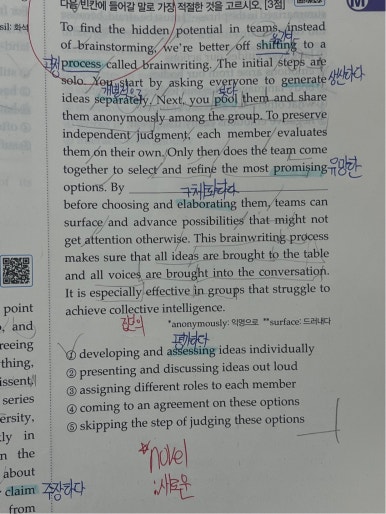 다음 빈칸에 들어갈 말로 가장 적절한 것을 고르시오. [3점]
sil: 화석
To find the hidden potential in teams, instead
of brainstorming, we're better off shifting to a
과정
process called brainwriting. The initial steps are
solo. You start by asking everyone to generate 생산하다
개별적으로
ideas separately. Next, you pool them and share
them anonymously among the group. To preserve
independent judgment, each member evaluates
them on their own. Only then does the team come
together to select and refine the most promising 유망한
options. By
구체화하다
before choosing and elaborating them, teams can
surface and advance possibilities that might not
get attention otherwise. This brainwriting process
makes sure that all ideas are brought to the table
and all voices are brought into the conversation.
It is especially effective in groups that struggle to
achieve collective intelligence.
집단의
*anonymously: 익명으로 **surface: 드러내다
① developing and assessing ideas individually
평가하다
② presenting and discussing ideas out loud
③ assigning different roles to each member
④ coming to an agreement on these options
⑤ skipping the step of judging these options
*novel
:새로운
point
, and
reeing
thing,
issent,
series
ersity,
tly in
n the
about
claim 주장하다
from